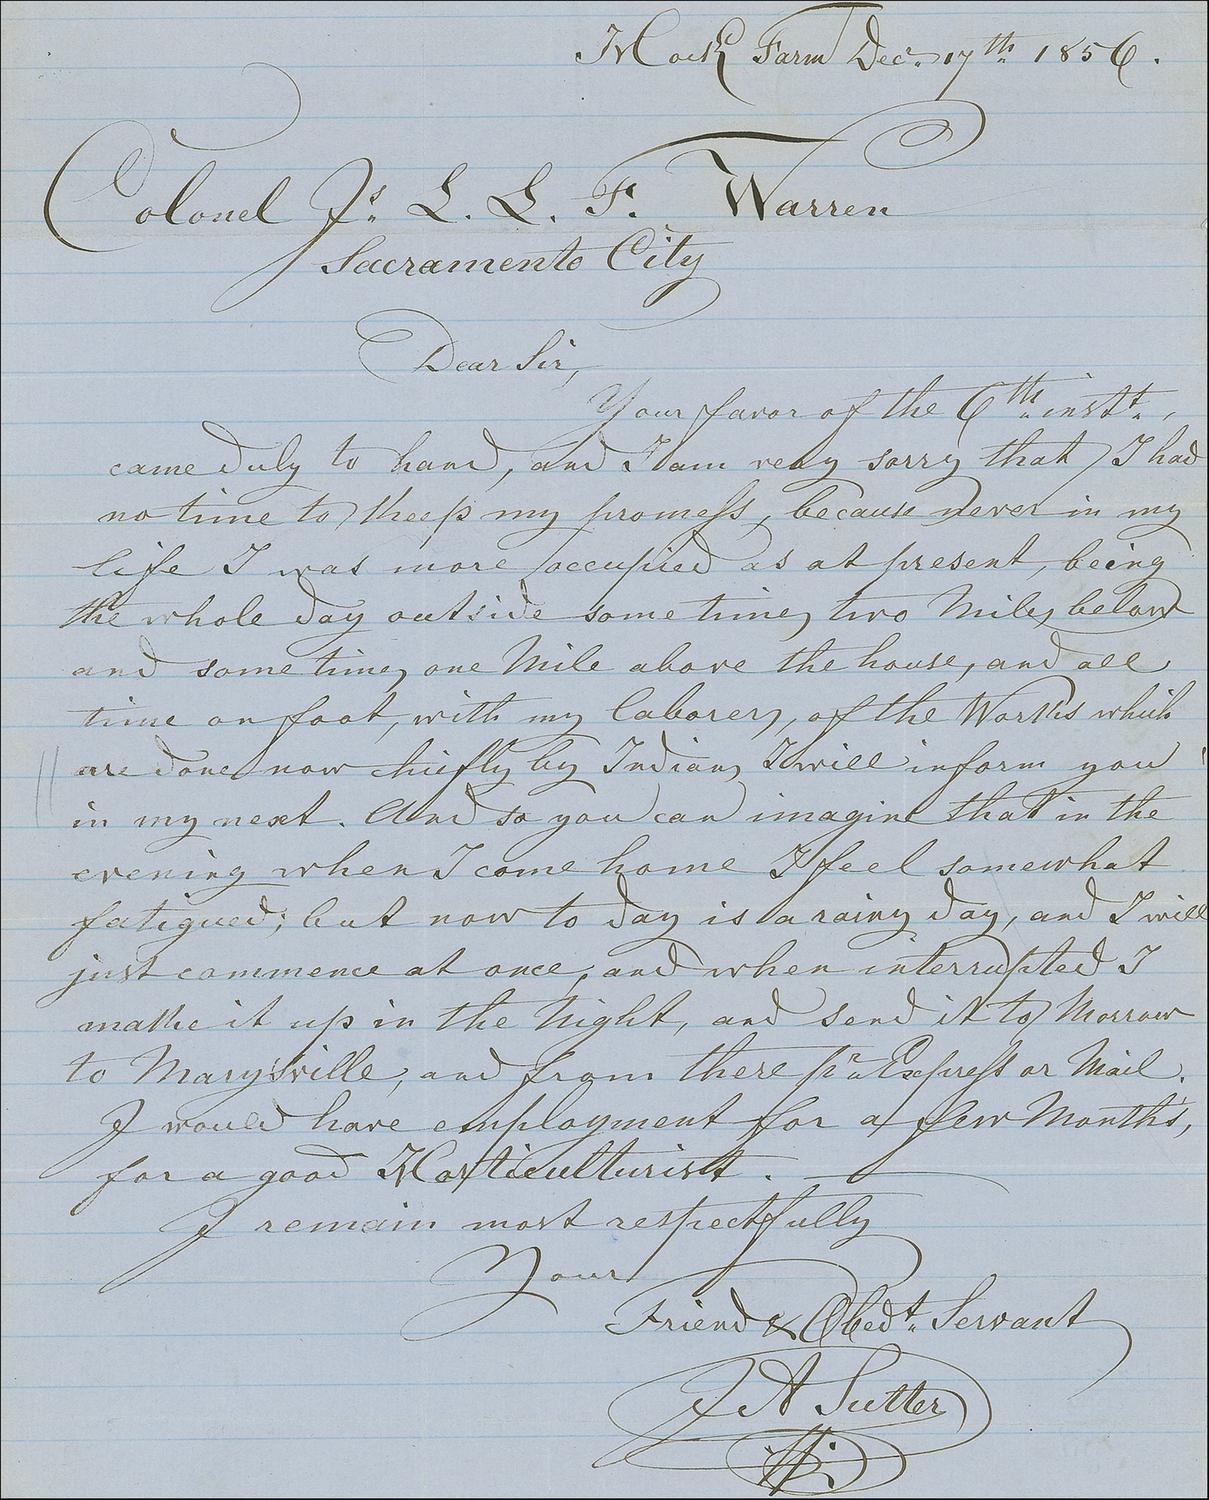 Hock Farm Dec. 17th 1856.
Colonel Js. L. L. F. Warren
Sacramento City
Dear Sir,
Your favor of the 6th instt.,
came duly to hand, and I am very sorry that I had
no time to keep my promess, because never in my
life I was more occupied as at present, being
the whole day outside sometimes two Miles below
and sometimes one Mile above the house, and all
time on foot, with my laborers, of the Works which
are done now chiefly by Indians I will inform you
in my next. And so you can imagine that in the
evening when I come home I feel somewhat
fatigued; but now to day is a rainy day, and I will
just commence at once, and when interrupted I
make it up in the Night, and send it to Morrow
to Marysville, and from there pr. Express or Mail.
I would have employment for a few Month's,
for a good Horticulturist. —
I remain most respectfully
Your
Friend & Obedt. Servant
J A Sutter